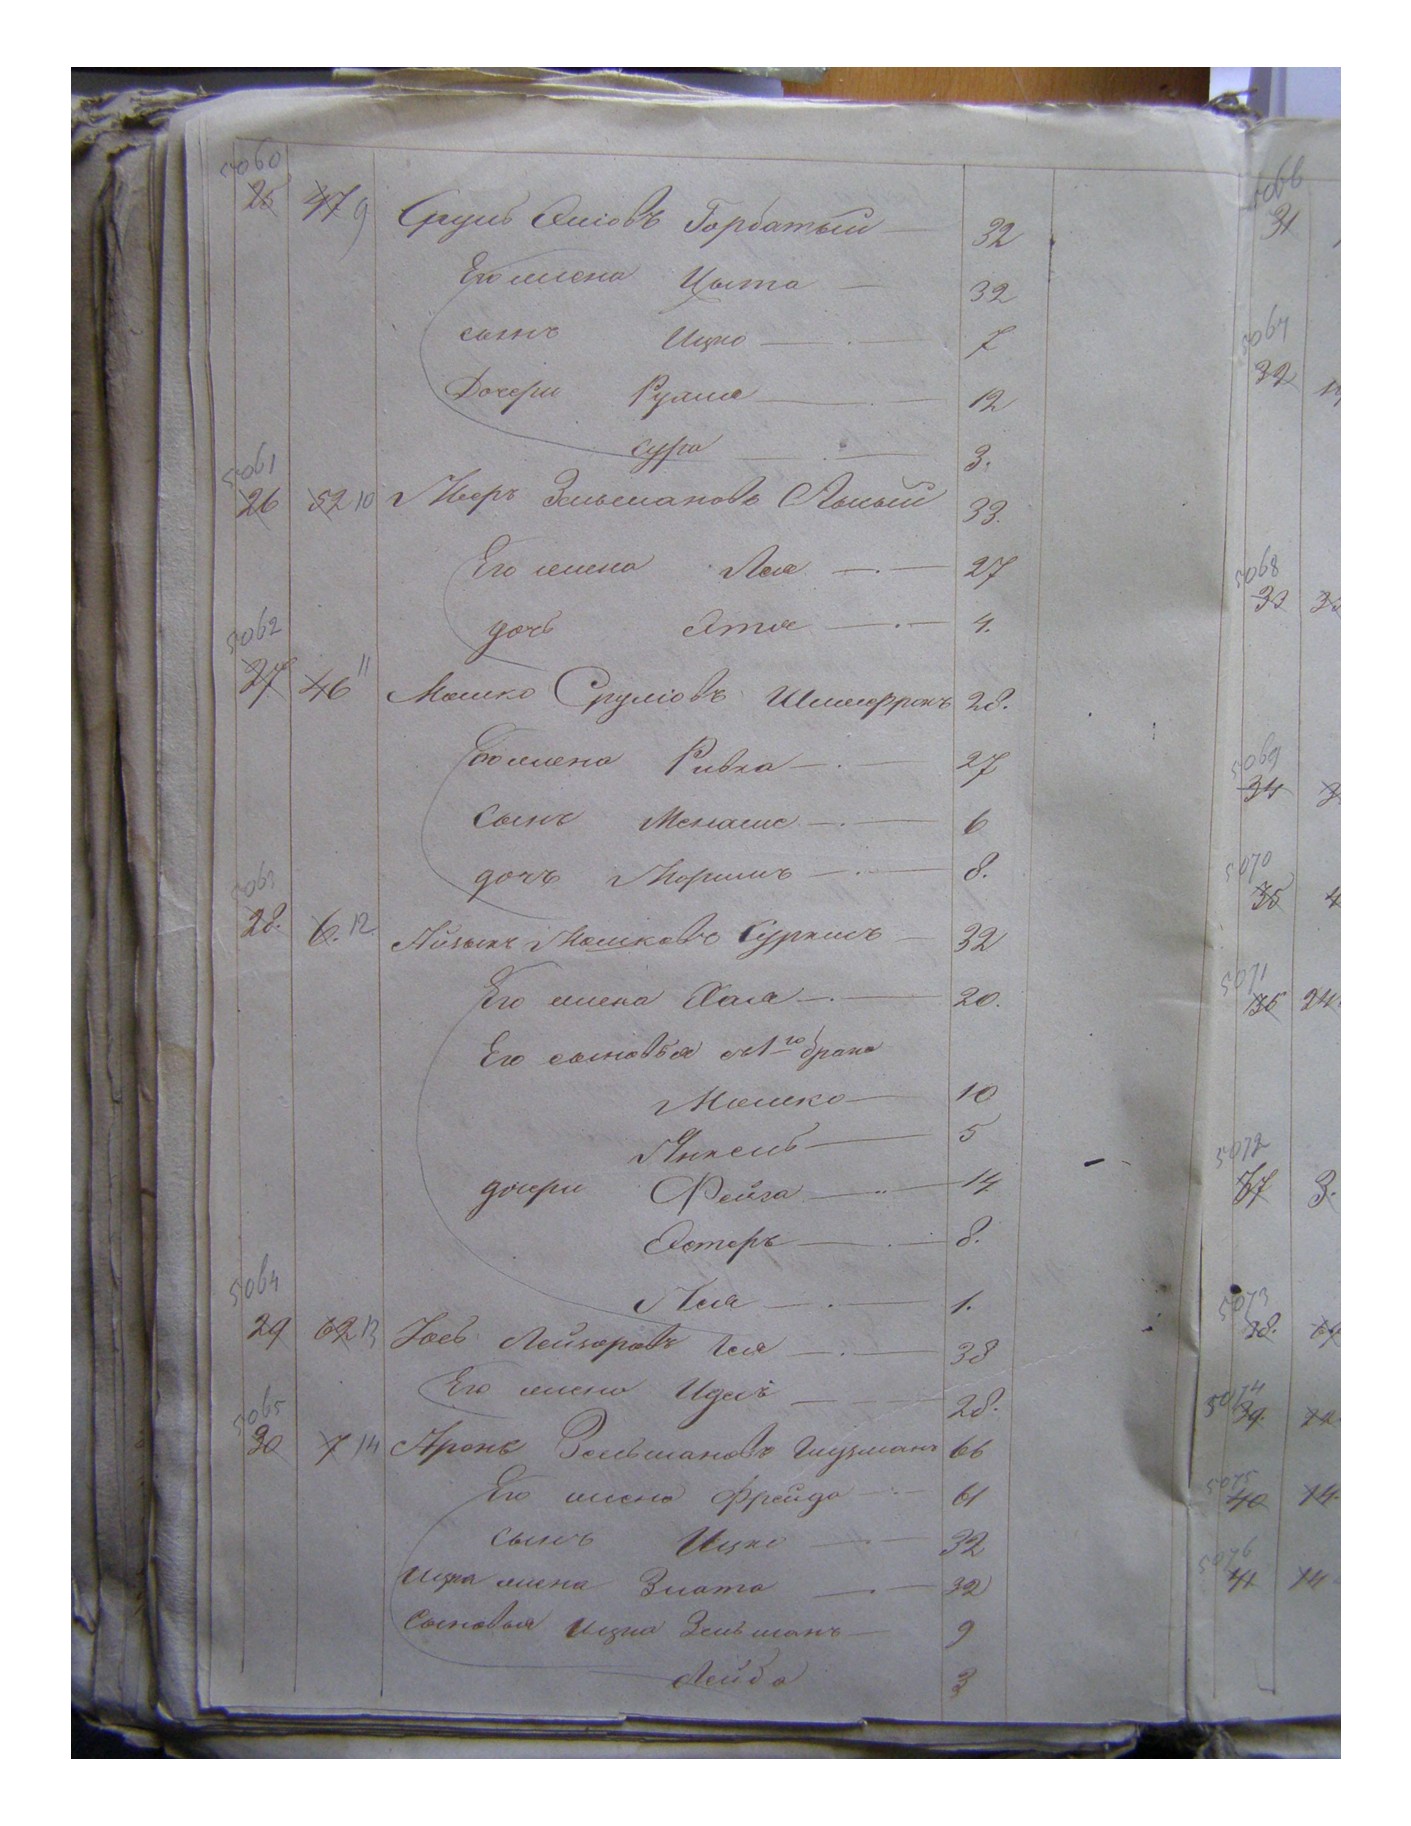 5060
25 47 9 Сруль Осіовъ Горбатый 32
Его жена Цыта 32
сынъ Ицко 7
Дочери Рухля 12
сура 3.
5061
26 52 10 Мееръ Зельмановъ 33.
Его жена Лея 27
дочь Эта 4.
5062
27 46 11 Мошко Сруліовъ 28.
Его жена Ривка 27
Сынъ Менаше 6
дочь Маріимъ 8.
5063
28. 6. 12 Айзыкъ Мошковъ 32
Его жена Хая 20.
Его сыновья съ 1го брака
Мошко 10
Янкель 5
дочери Фейга 14
Эстеръ 8.
Лея 1.
5064
29 62 13 Іось Лейзеровъ 38
Его жена Идесъ 28.
5065
30 7 14 Аронъ Зельмановъ 66
Его жена Фрейда 61
Сынъ Ицко 32
Ицка жена Злота 32
Сыновья Ицка Зельманъ 9
Лейба 3
5066
31
5067
32
5068
33
5069
34
5070
35 4
5071
36 24.
5072
37 3.
5073
38.
5074
39.
5075
40 14.
5076
41 14